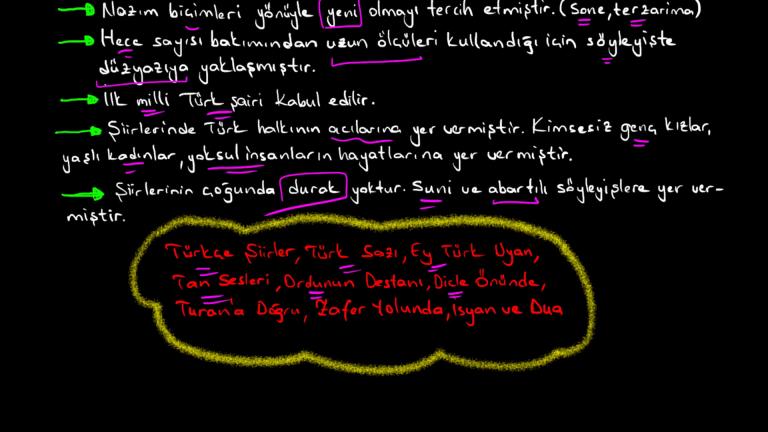 Nazım biçimleri yönüyle yeni olmayı tercih etmiştir. (sone, terzarima)
Hece sayısı bakımından uzun ölçüleri kullandığı için söyleyişte
düzyazıya yaklaşmıştır.
İlk milli Türk şairi kabul edilir.
Şiirlerinde Türk halkının acılarına yer vermiştir. Kimsesiz genç kızlar,
yaşlı kadınlar, yoksul insanların hayatlarına yer vermiştir.
Şiirlerinin çoğunda durak yoktur. Suni ve abartılı söyleyişlere yer ver-
miştir.
Türkçe Şiirler, Türk Sazı, Ey Türk Uyan,
Tan Sesleri, Ordunun Destanı, Dicle Önünde,
Turan'a Doğru, Zafer Yolunda, İsyan ve Dua